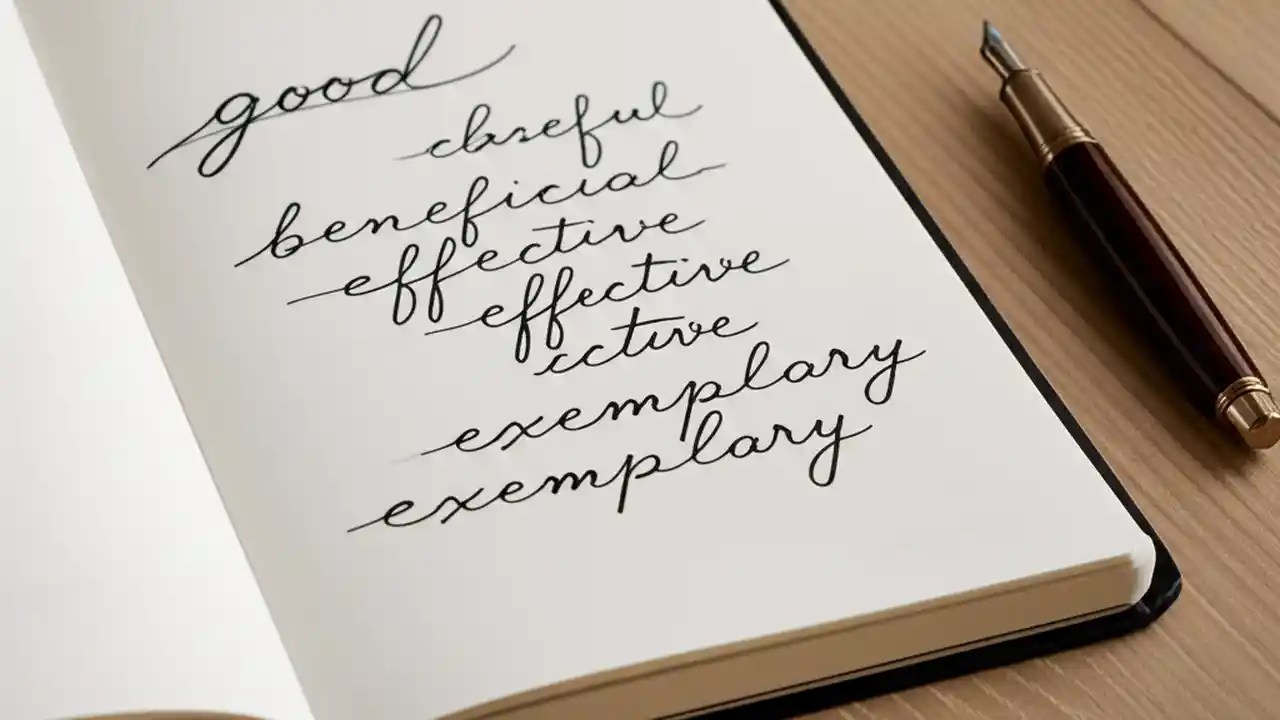 good
beneficial
effective
effective
cctive
exemplary
exemplary